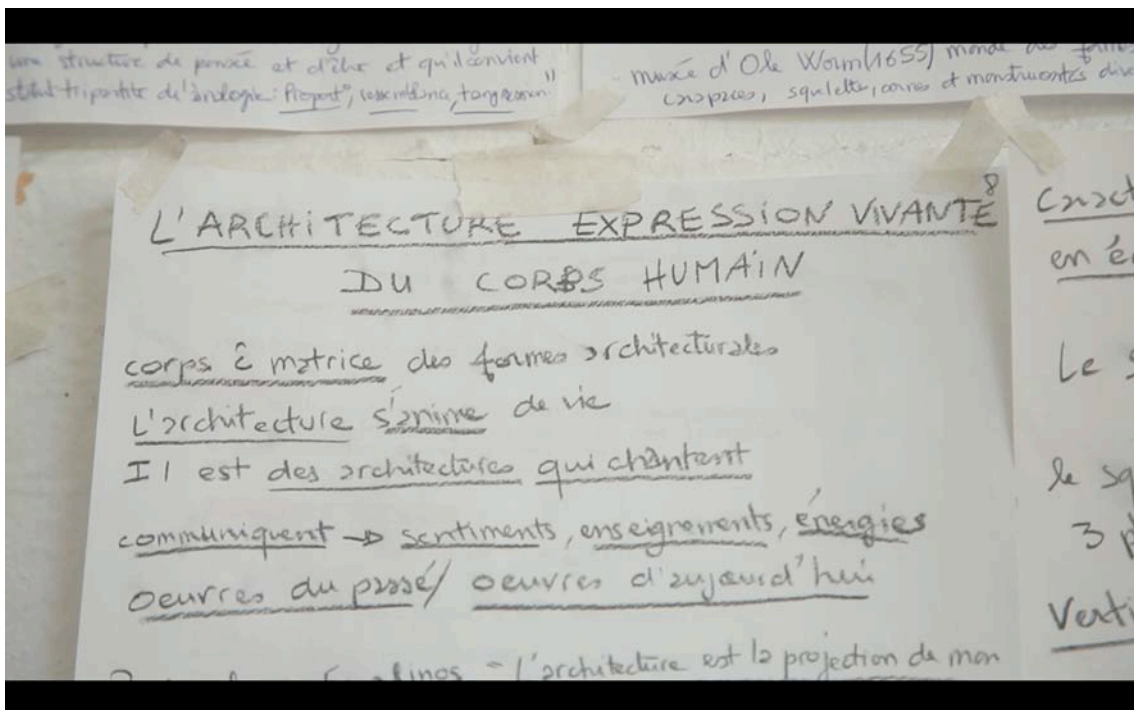 une structure de pensée et d'être et qu'il convient
statut tripartite de l'analogie: Proport°, ressemblance,
musée d'Ole Worm (1655) monde des formes
squelette, cornes et monstruosités
L'ARCHITECTURE EXPRESSION VIVANTE 8
DU CORPS HUMAIN
corps = matrice des formes architecturales
L'architecture s'anime de vie
Il est des architectures qui chantent
communiquent → sentiments, enseignements, énergies
oeuvres du passé / oeuvres d'aujourd'hui
l'architecture est la projection de mon
en
Le
le
3